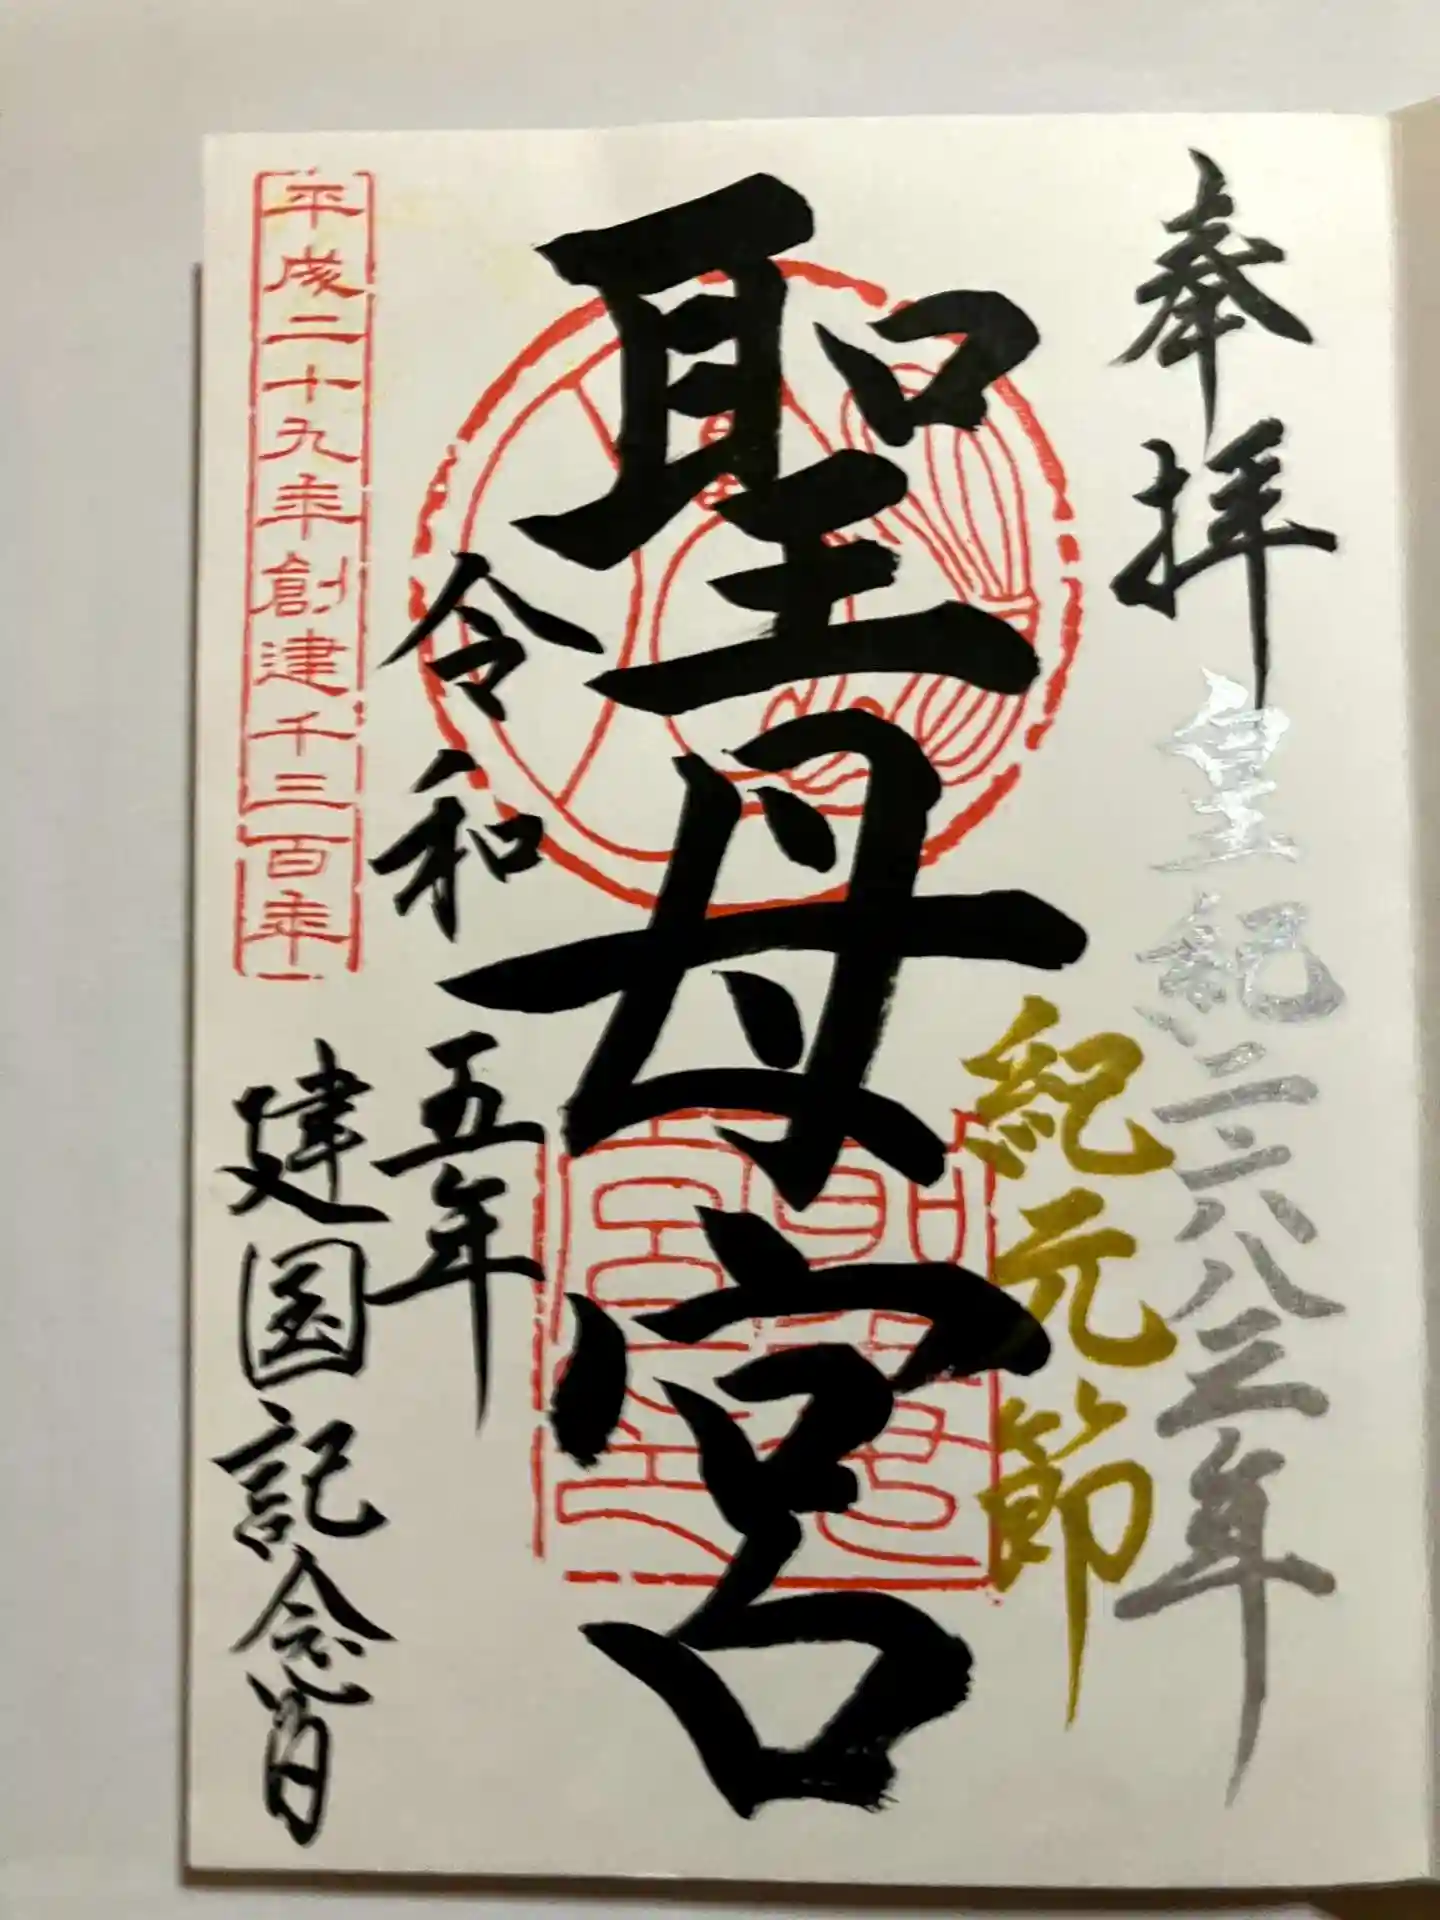 奉拝
皇紀二六八三年
紀元節
聖母宮
令和五年
建国記念の日
平成二十九年創建千三百年